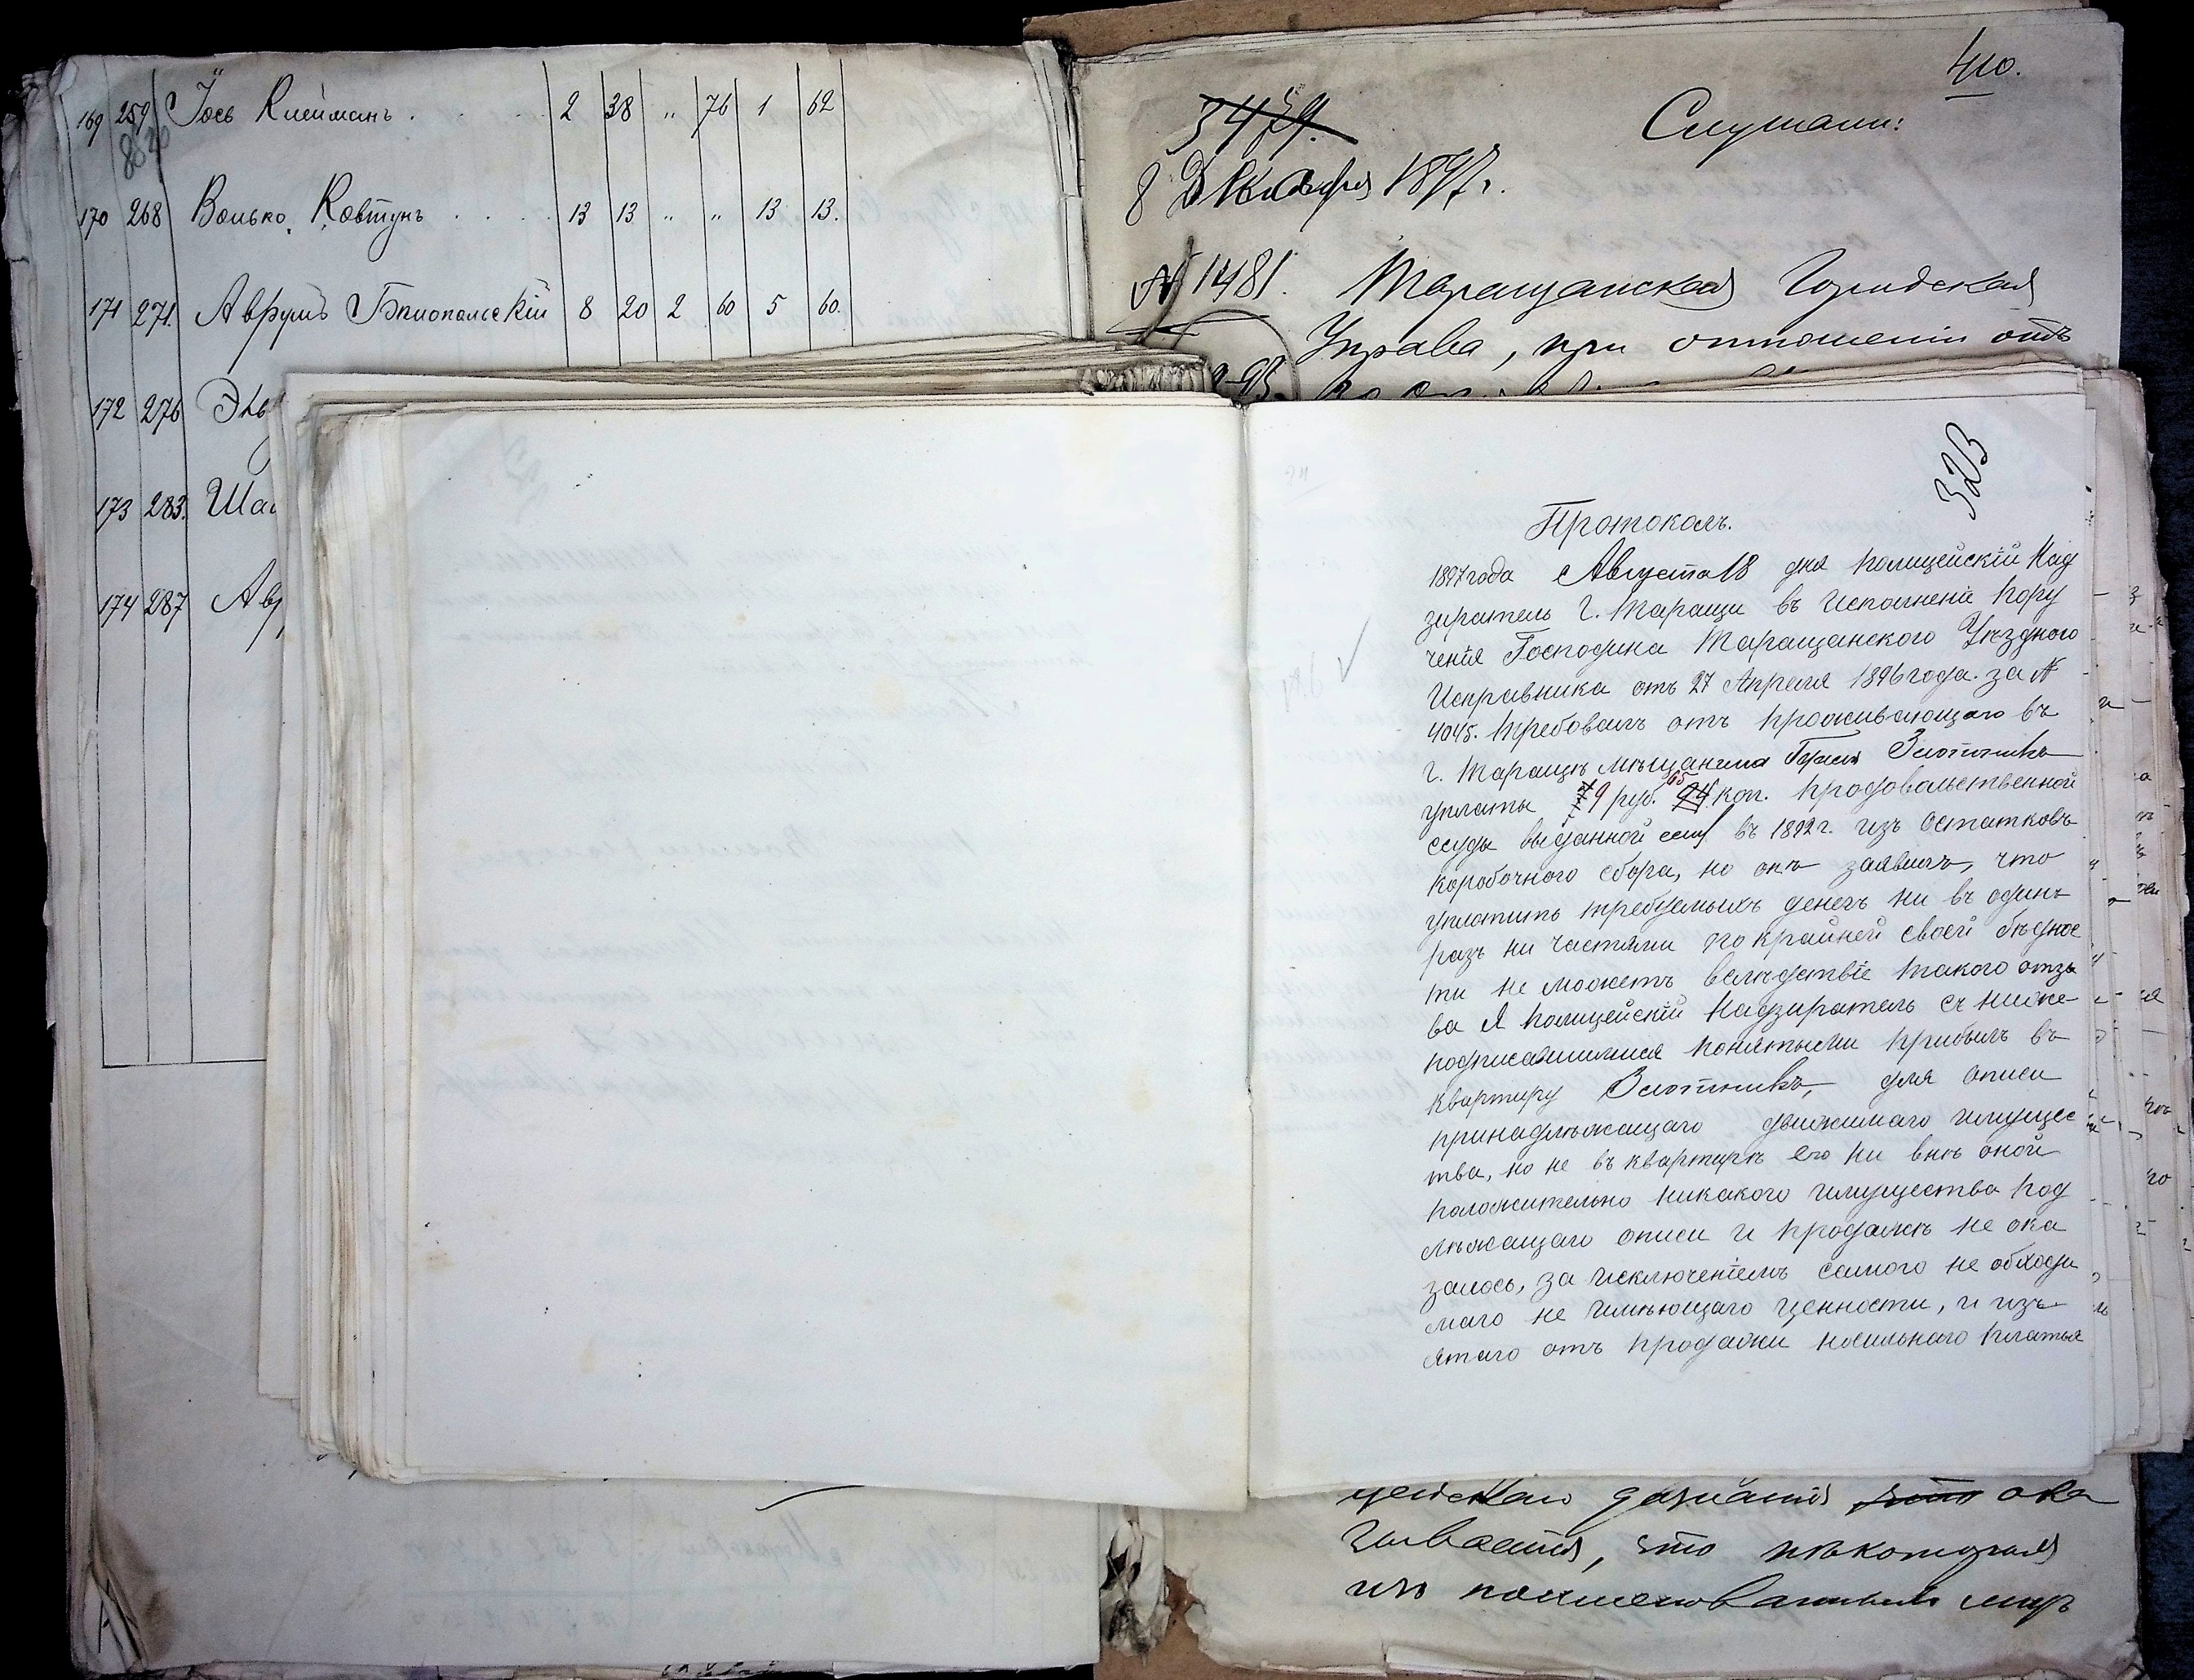 169 259 Іось Клейманъ . . . . 2 38 „ 76 1 62
170 268 Волько Ковтунъ . . . . 13 13 „ „ 13 13.
171 271. Аврумъ Бялопольскій 8 20 2 60 5 60.
172 276
173 283.
174 287
410.
Слушали:
8 Декабря 1897 г.
№ 1481. Таращанская Городская
Управа, при отношеніи отъ
323
Протоколъ.
1897 года Августа 18 дня Полицейскій Над
зиратель г. Таращи въ исполненіе пору
ченія Господина Таращанского Уѣздного
Исправника отъ 27 Апреля 1896 года за №
4045. требовалъ отъ проживающаго въ
г. Таращѣ мѣщанина Злотника
уплаты 9 руб. 65 коп. продовольственной
ссуды выданной ему въ 1892 г. изъ остатковъ
коробочного сбора, но онъ заявилъ, что
уплатить требуемыхъ денегъ ни въ одинъ
разъ ни частями по крайней своей бѣднос
ти не можетъ вслѣдствіе такого отзы
ва я Полицейскій Надзиратель съ ниже-
подписавшимися понятыми прибылъ въ
квартиру Злотника, для описи
принадлѣжащаго движимаго имущес
тва, но не въ квартирѣ его ни внѣ оной
положительно никакого имущества под
лѣжащаго описи и продажѣ не ока
залось, за исключеніемъ самого не обходи
маго не имѣющаго ценности, и изъ-
ятаго отъ продажи носильнаго платья
дознанія ока
зывается, что нѣкоторыя
изъ поименованныхъ лицъ